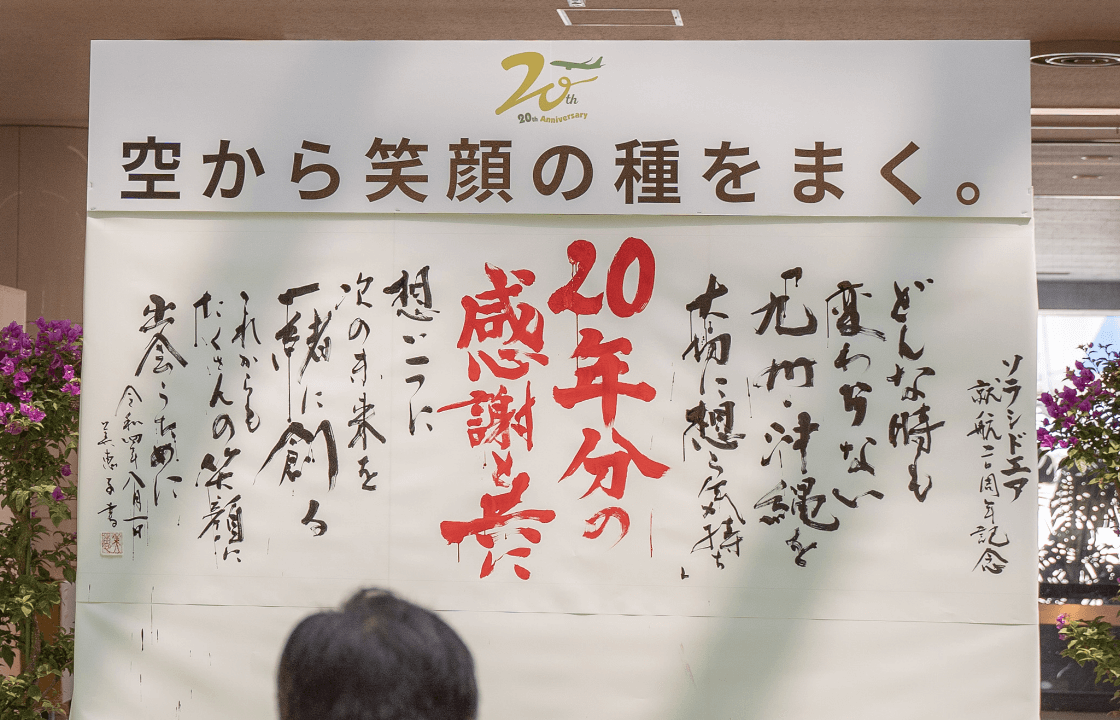 20th
20th Anniversary
空から笑顔の種をまく。
ソラシドエア
就航二〇周年記念
どんな時も
変わらない
九州・沖縄を
大切に想う気持ち
20年分の
感謝と共に
想いこうに
次の未来を
一緒に創る
これからも
たくさんの笑顔に
出会うために
令和四年八月一日
恵子書